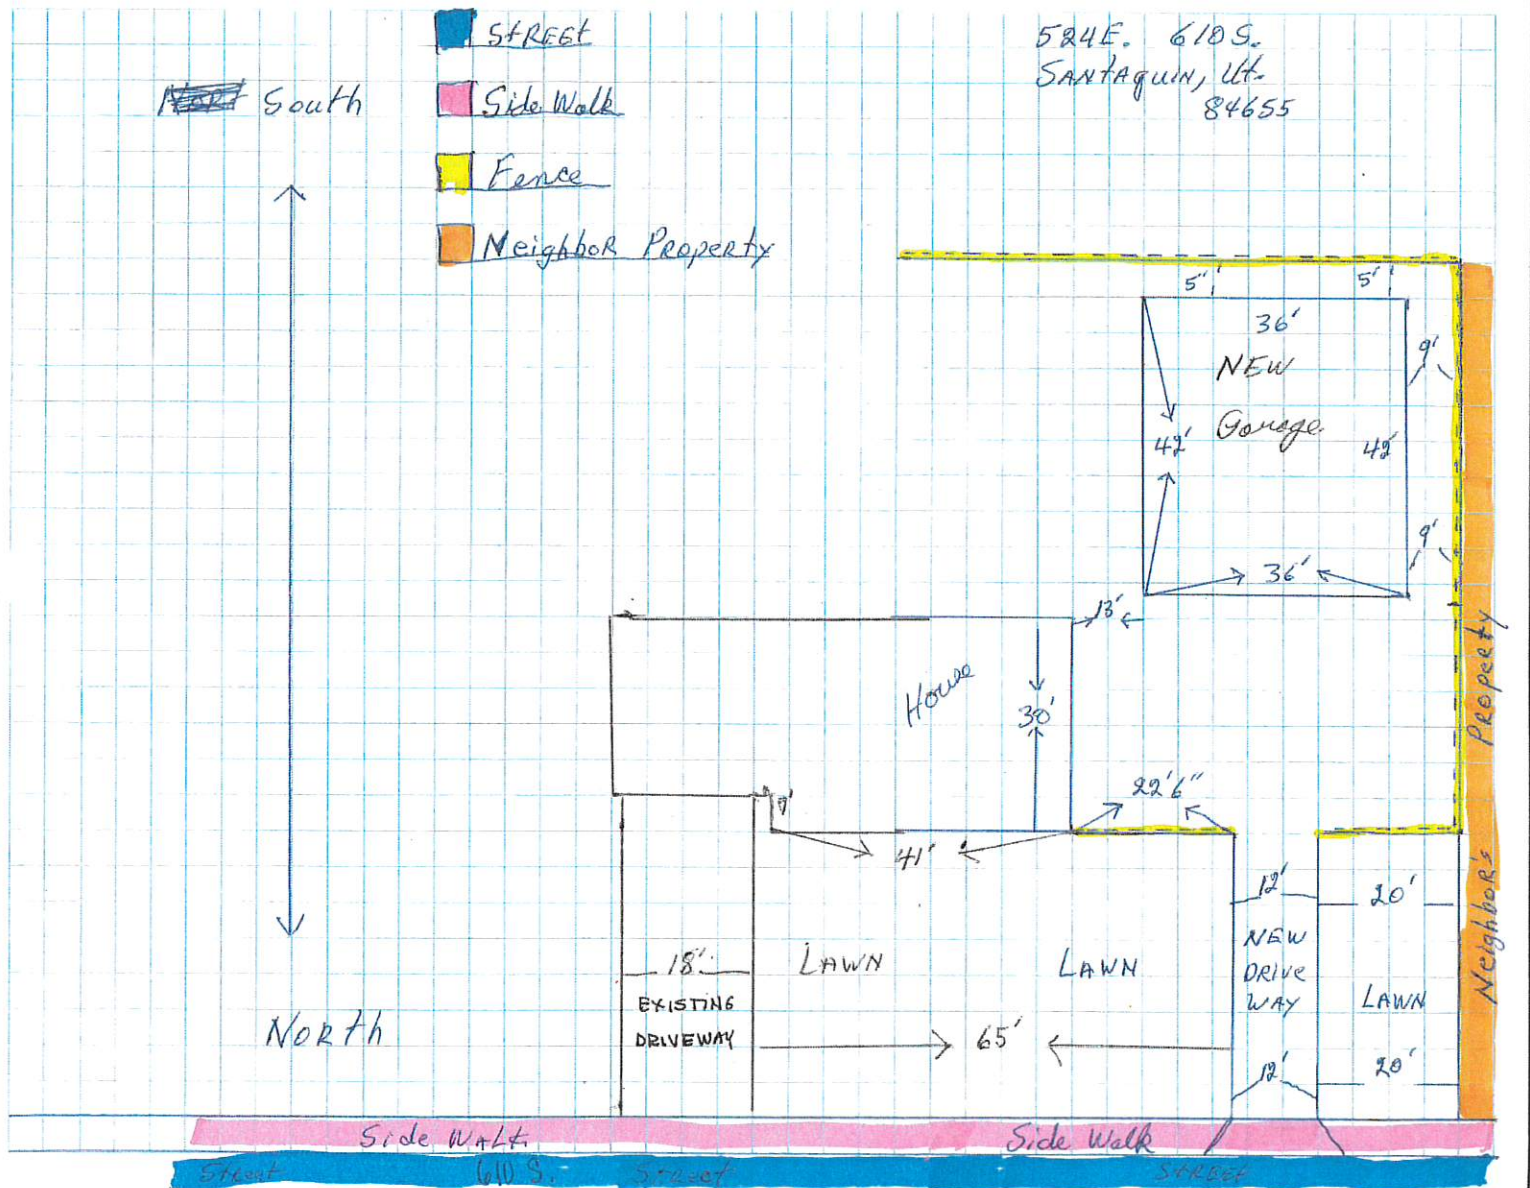 Street
Side Walk
Fence
Neighbor Property
524E. 610 S.
Santaquin, Ut.
84655
South
North
5'
5'
36'
New
Garage
9'
42'
42'
9'
36'
13'
House
30'
22'6"
7'
41'
12'
20'
18'
Existing
Driveway
Lawn
Lawn
New
Drive
Way
Lawn
65'
12'
20'
Neighbor's Property
Side Walk
Side Walk
Street
610 S.
Street
Street